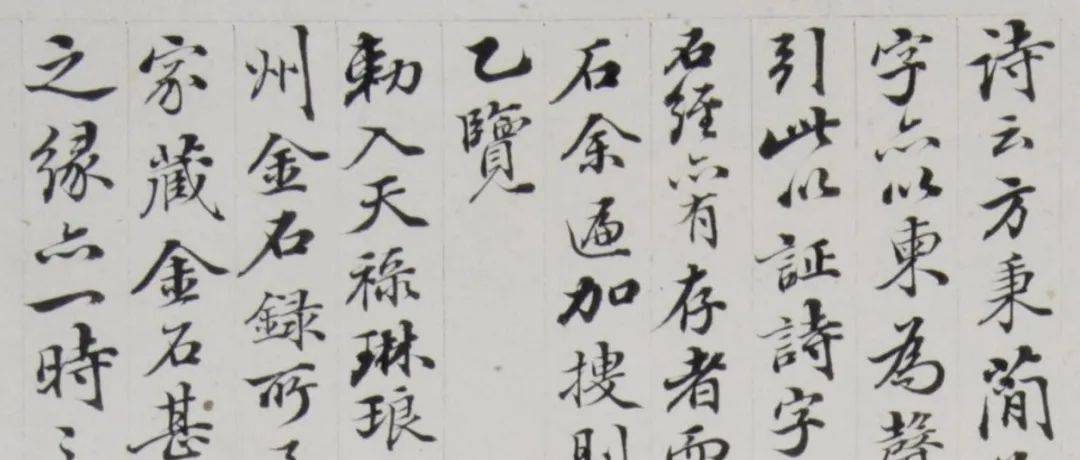 诗云方秉蕳
字亦以東為聲
引此以証詩字
石經亦有存者而
石余遍加搜則
乙覽
勅入天禄琳琅
州金石録所
家藏金石甚
之缘亦一時